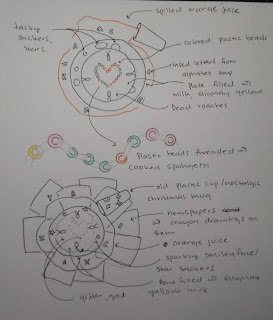 spilled orange juice
tacky
stickers,
stars.
colored plastic beads
rinsed letters from
alphabet soup
Plate filled w/
milk slightly yellow
Dead roaches
Plastic beads threaded w/
cooked spaghetti
old plastic cup/nostalgic
christmas mug
newspapers
w/ crayon drawings on
them
orange juice
sparkling smiley face/
star stickers
Bowl filled w/ slightly
yellow milk
glitter gold